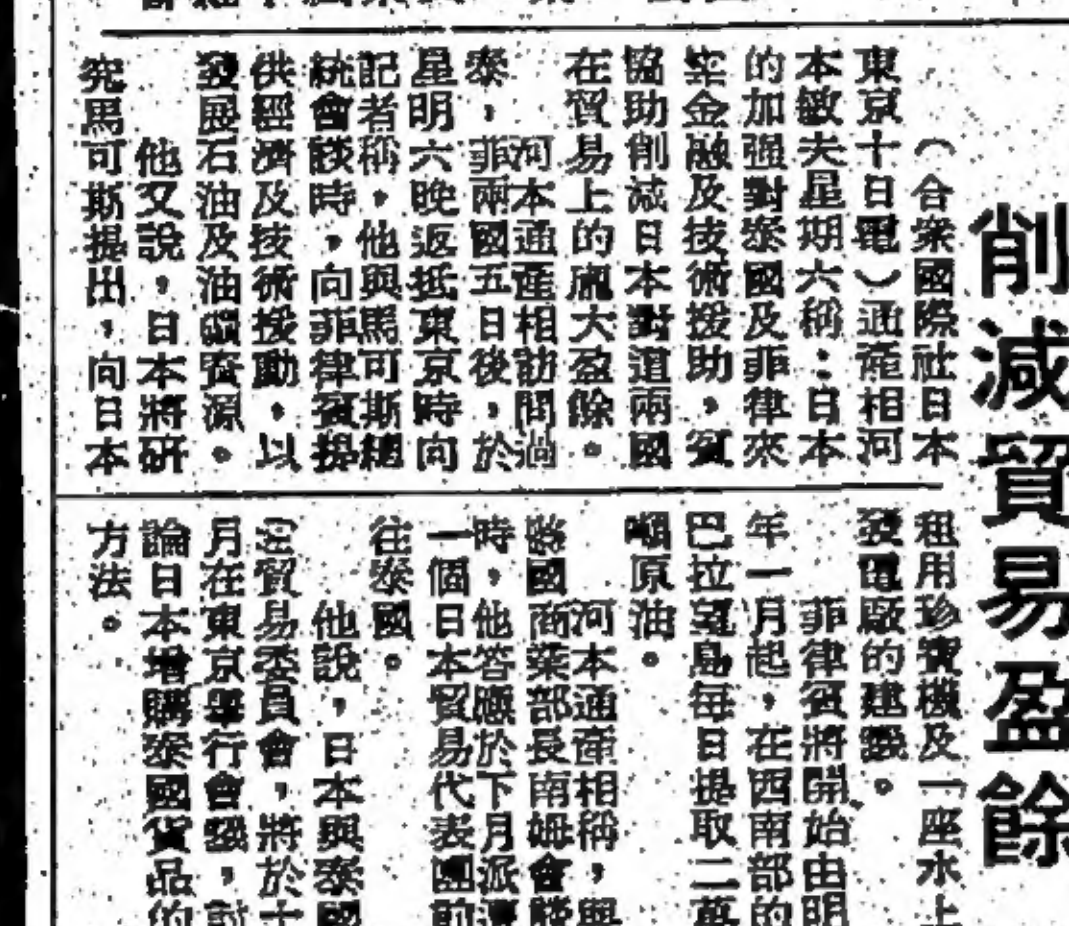 削減貿易盈餘
（合衆國際社日本
東京十日電）通産相河
本敏夫星期六稱：日本
的加强對泰國及菲律來
金融及技術援助，賓
協助削減日本對道兩國
在貿易上的龐大盈餘。
河本通產相訪問過
泰，菲兩國五日後，於
星明六晚返抵東京時向
記者稱，他與馬可斯總
統會談時，向菲律賓提
供經濟及技術援動，以
發展石油及油礦資源。
他又說，日本將研
究馬可斯提出，向日本
租用珍寶機及一座水上
發電廠的建議。
菲律賓將開始由明
年一月起，在西南部的
巴拉望島每日提取二萬
噸原油。
河本通產相稱，與
泰國商業部長南姆會談
時，他答應於下月派遣
一個日本貿易代表團前
往泰國。
他說，日本與泰國
貿易委員會，將於十
月在東京舉行會議，討
論日本增購泰國貨品的
方法。